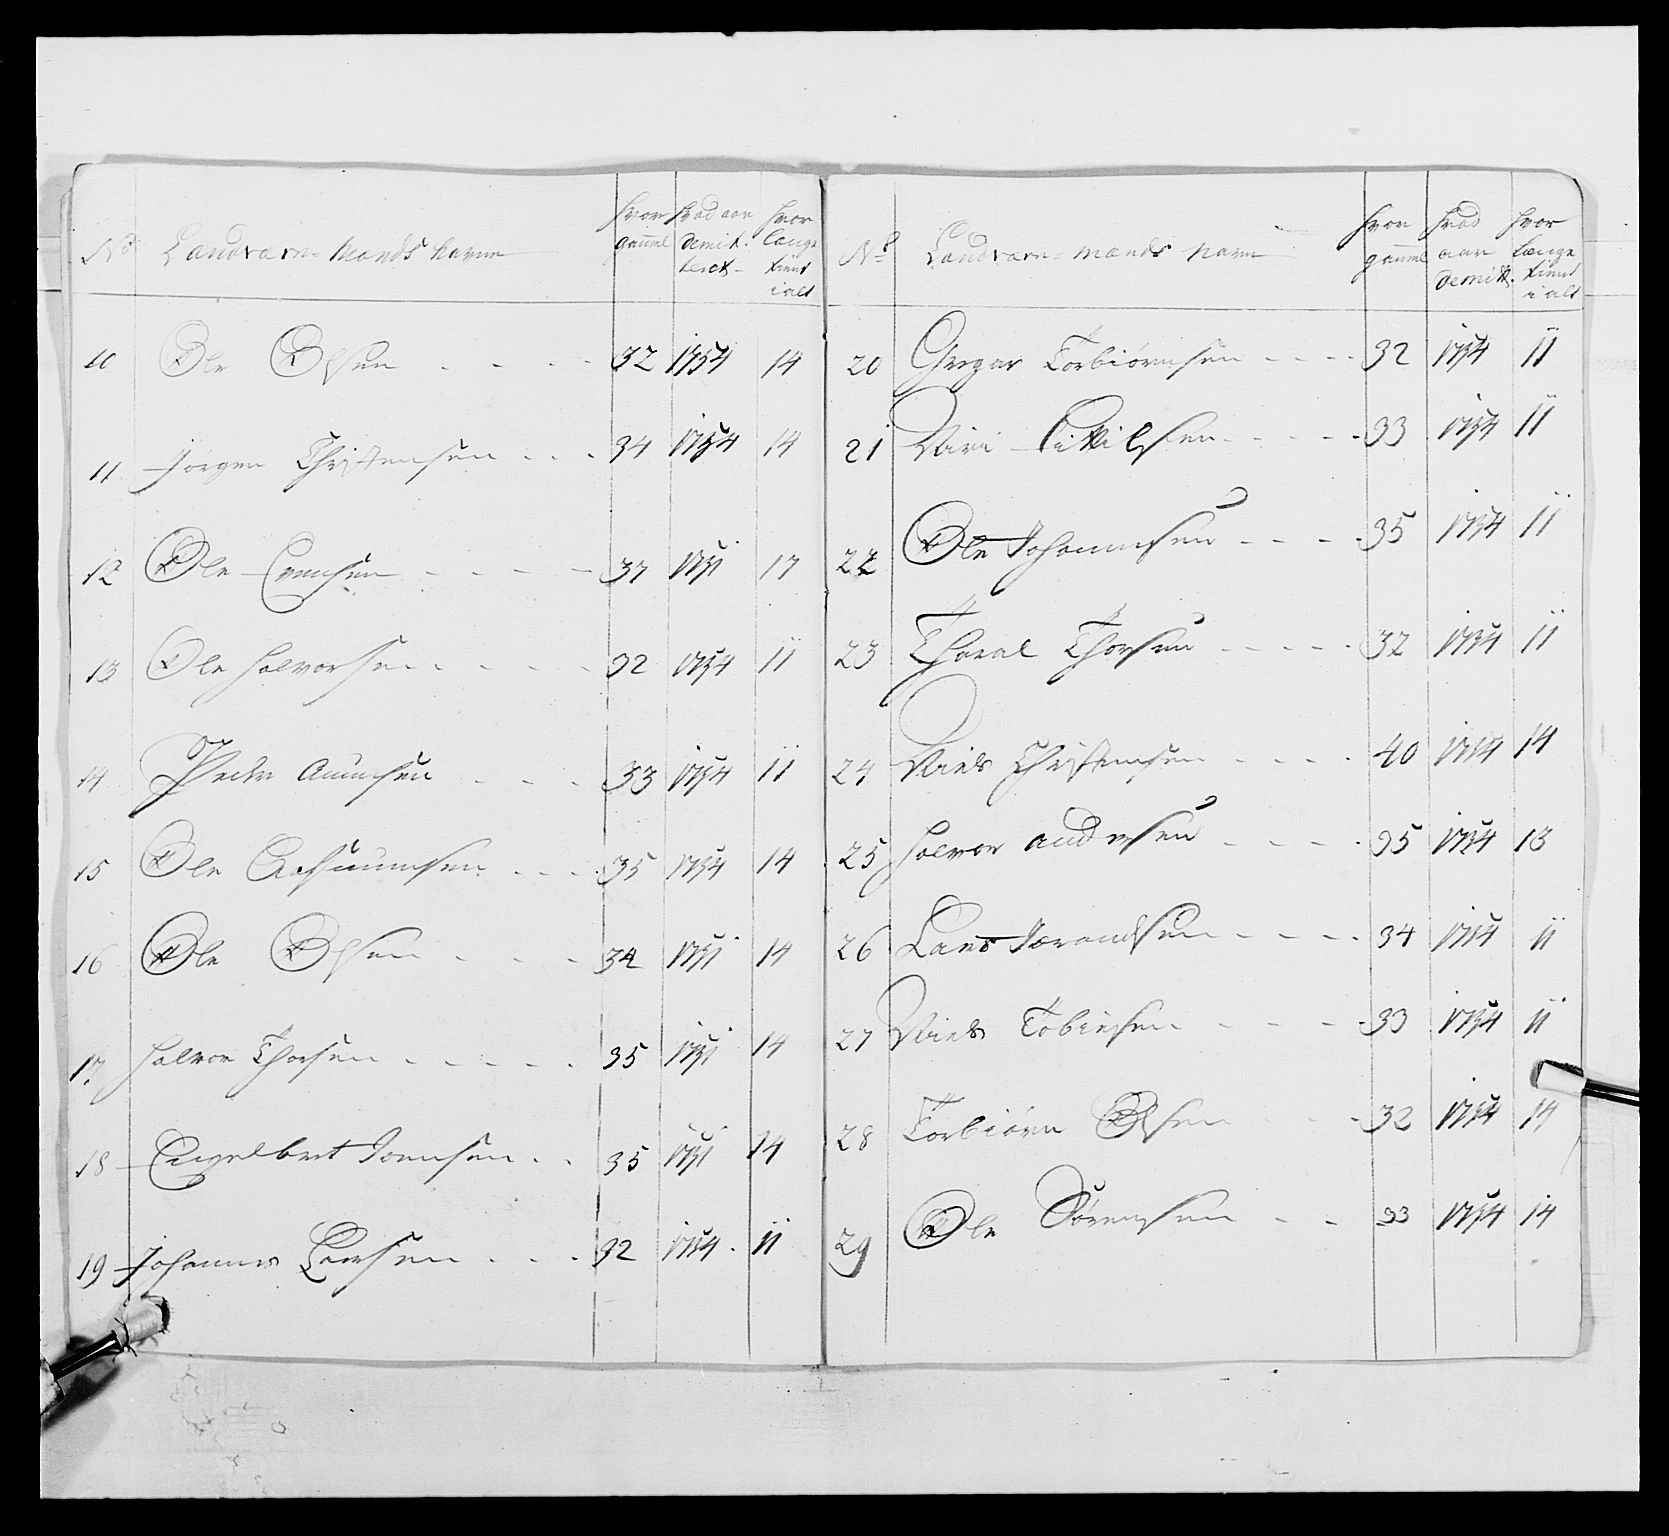 No Landværn-Mands Navne hvor gammel hvad aar demit. teret hvor længe tient i alt
10 Ole Olsen 32 1754 14
11 Jörgen Christensen 34 1754 14
12 Ole Evensen 37 1751 17
13 Ole Halvorsen 32 1754 11
14 Peder Amunsen 33 1754 11
15 Ole 35 1754 14
16 Ole Olsen 34 1751 14
17 Halvor Thorsen 35 1751 14
18 Engelbret Joensen 35 1751 14
19 Johannes Larsen 32 1754 11
No Landværn-Mands Navne hvor gammel hvad aar demitt. hvor længe tient i alt
20 Gregar Torbiörnsen 32 1754 11
21 Kittilsen 33 1754 11
22 Ole Johannesen 35 1754 11
23 Thoral Thorsen 32 1754 11
24 Niels Christensen 40 1754 14
25 Halvor Andersen 35 1754 13
26 Lars 34 1754 11
27 Niels Tobiesen 33 1754 11
28 Torbiörn Olsen 32 1754 14
29 Ole Sörensen 33 1754 14